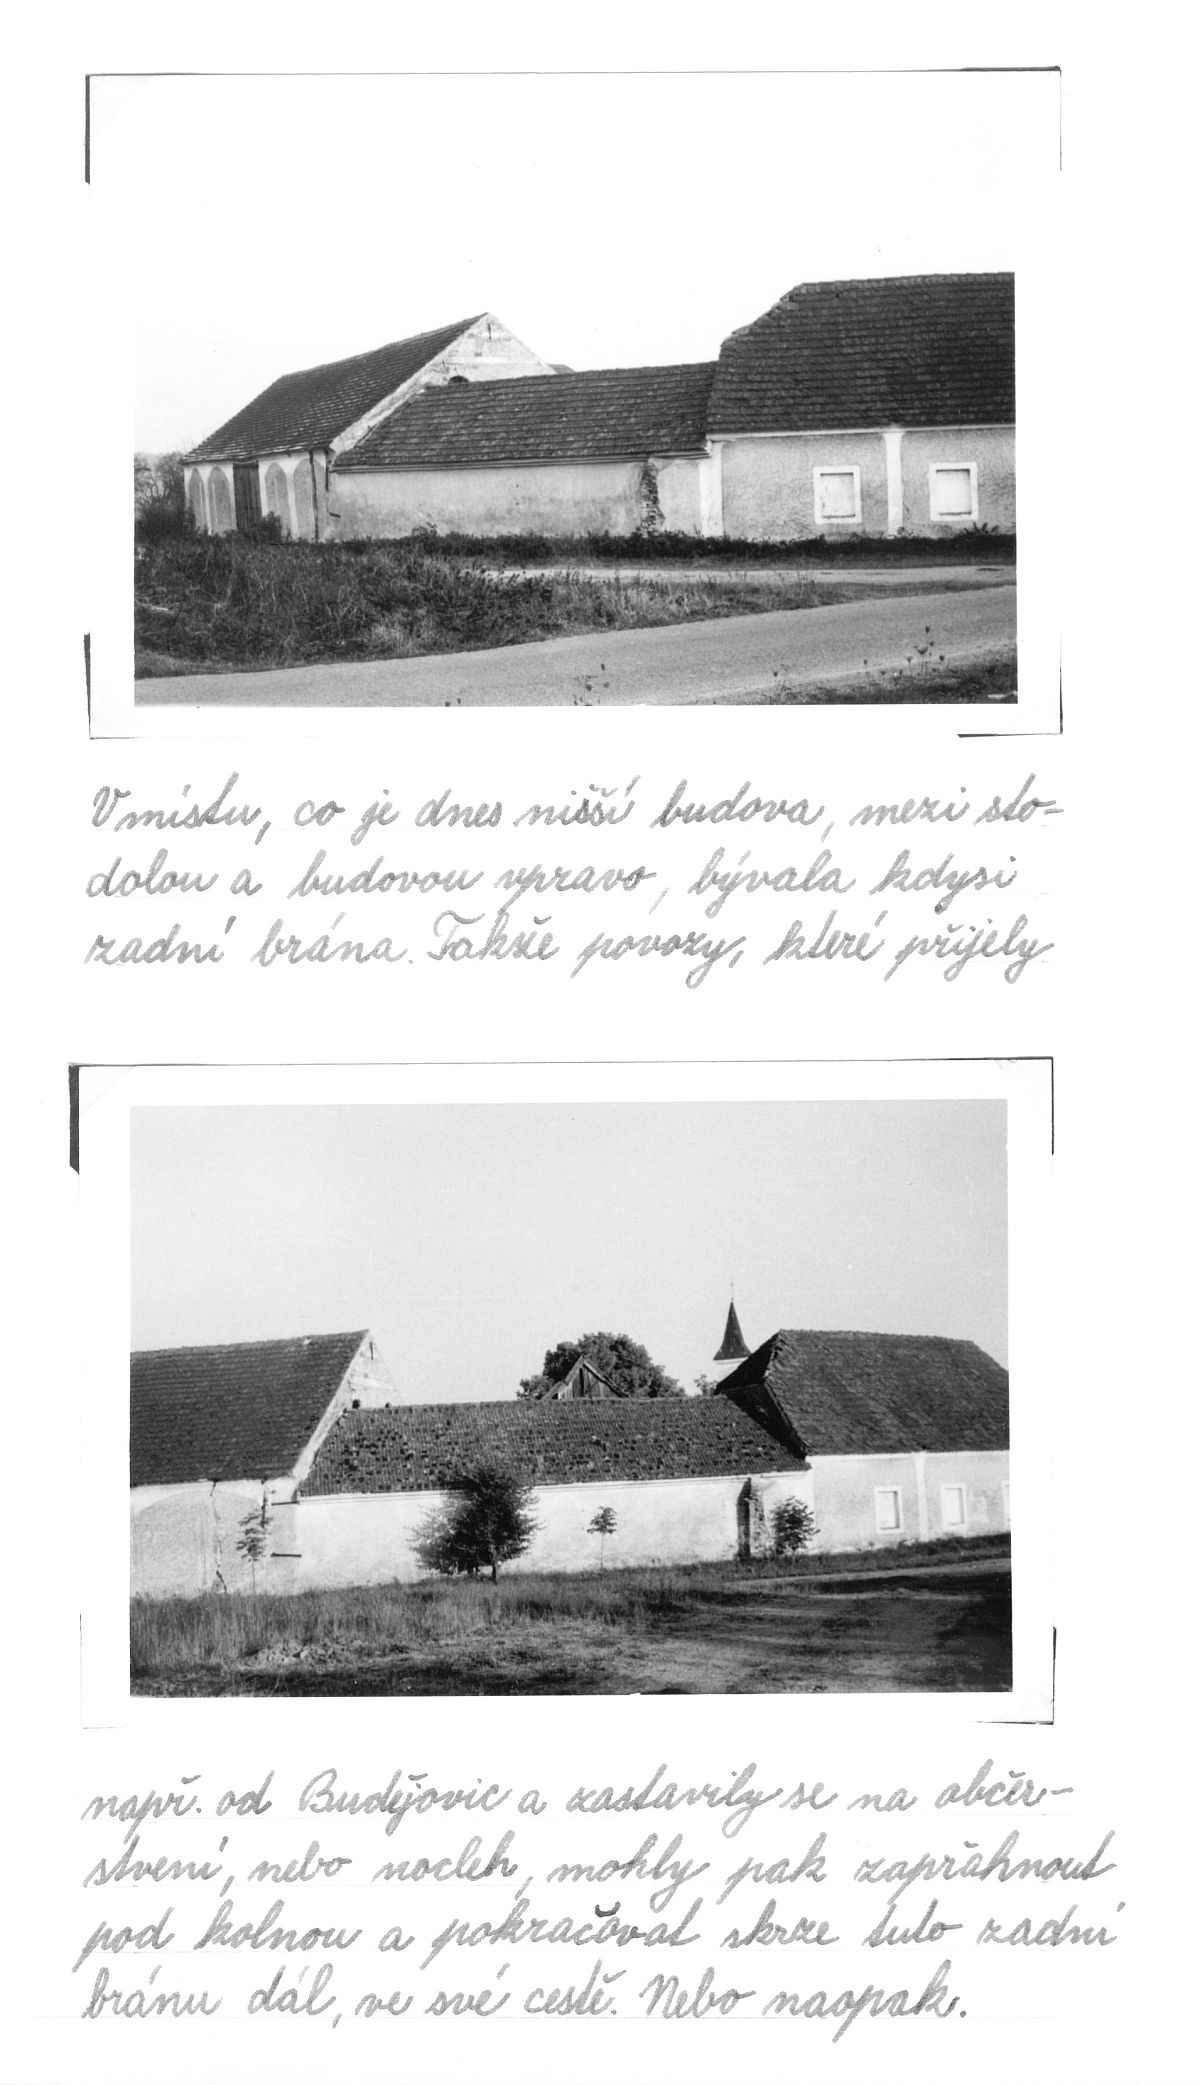 V místu, co je dnes nišší budova, mezi sto-
dolou a budovou vpravo, bývala kdysi
zadní brána. Takže povozy, které přijely
např. od Budějovic a zastavily se na občer-
stvení, nebo nocleh, mohly pak zapřáhnout
pod kolnou a pokračovat skrze tuto zadní
bránu dál, ve své cestě. Nebo naopak.